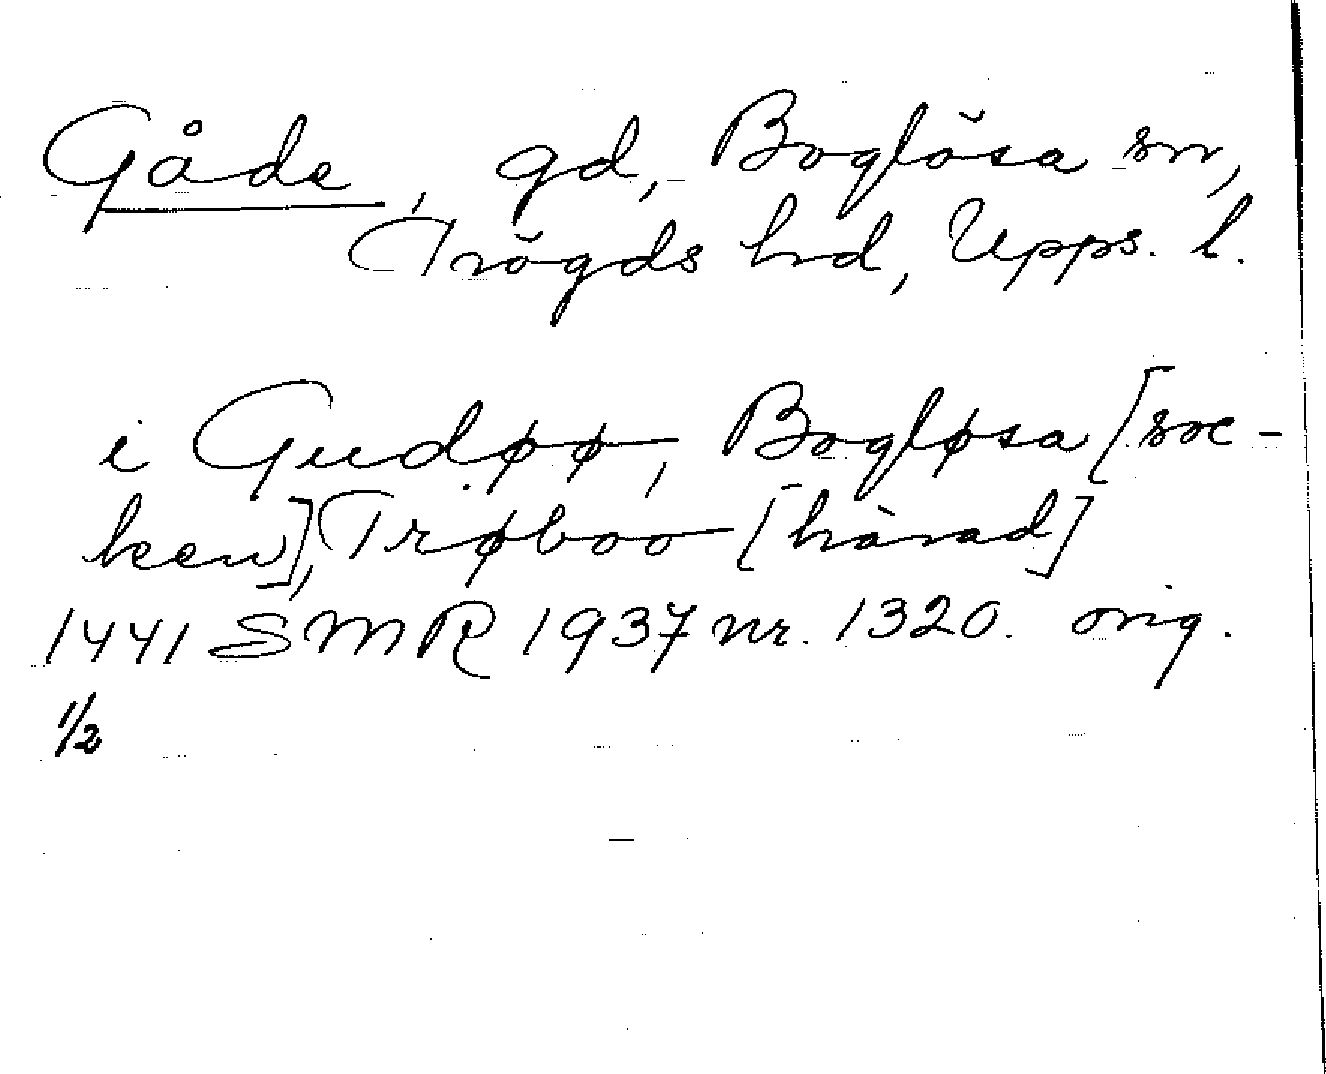 Gåde, gd, Boglösa sn,
Trögds hd, Upps. l.
i Gudøø, Bogløsa [soc-
ken], Trøboo [härad]
1441 SMR 1937 nr. 1320. orig.
1/2